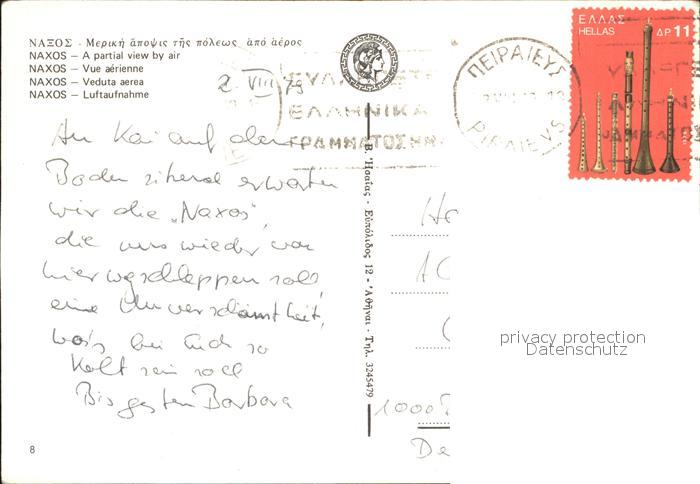 ΝΑΞΟΣ - Μερική ἄποψις τῆς πόλεως ἀπό ἀέρος
NAXOS – A partial view by air
NAXOS – Vue aérienne
NAXOS – Veduta aerea
NAXOS – Luftaufnahme
2. VIII 79
ΕΛΛΗΝΙΚΑ
ΓΡΑΜΜΑΤΟΣΗΜ
ΠΕΙΡΑΙΕΥΣ
PIRAIEVS
ΕΛΛΑΣ
HELLAS
ΔΡ 11
Am Kai auf dem
Boden sitzend erwarten
wir die „Naxos“,
die uns wieder von
hier wegschleppen soll
eine Unverschämtheit,
wo's bei Euch so
kalt sein soll
Bis gestern Barbara
Β. Ἡσαΐας - Εὐπόλιδος 12 - Ἀθῆναι - Τηλ. 3245479
1000
De
8
privacy protection
Datenschutz